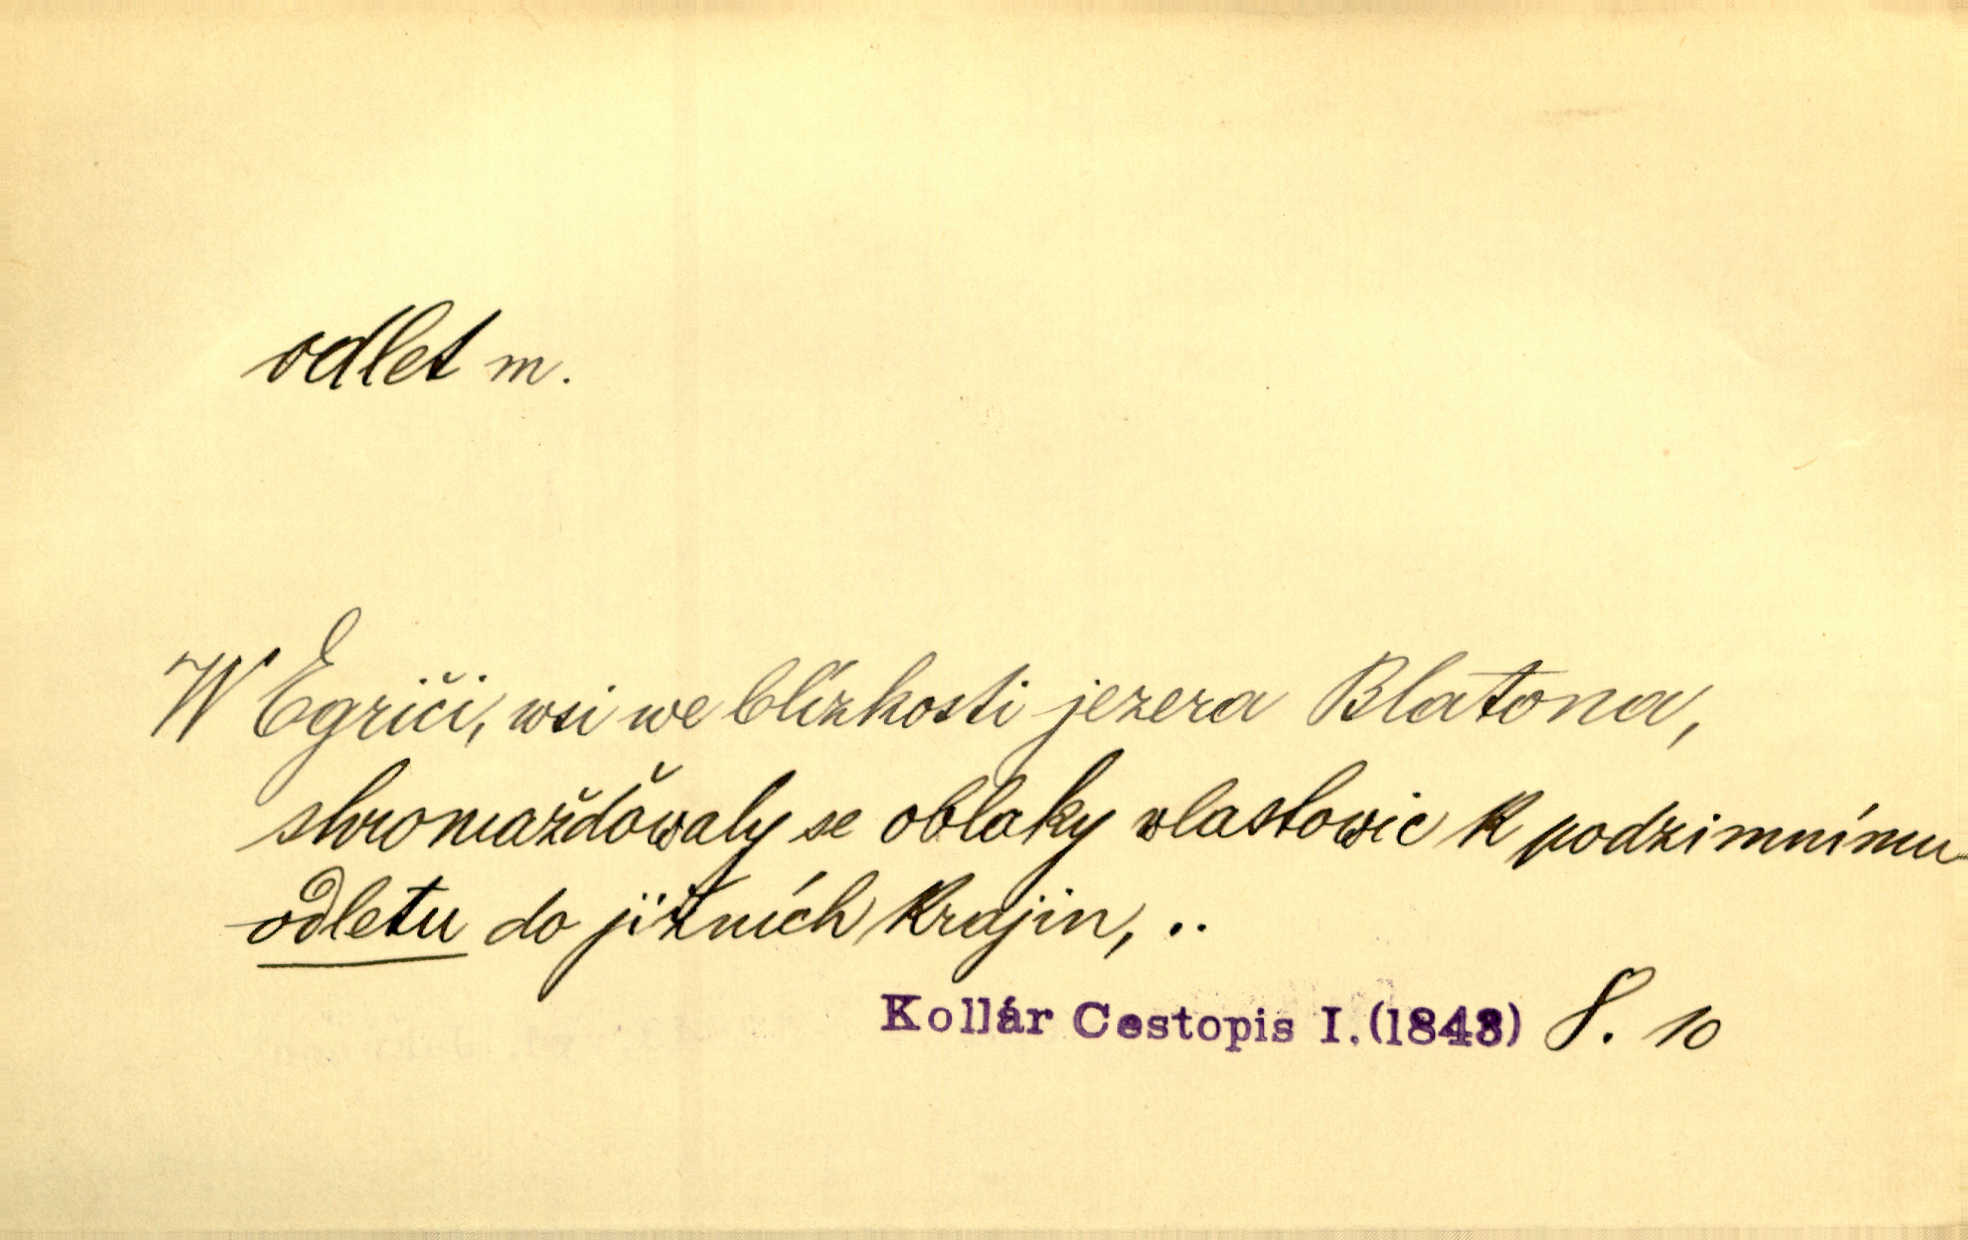 odlet m.
W Egriči, wsi we blízkosti jezera Blatona,
shromažďowaly se oblaky wlastowic k podzimnímu
odletu do jižních krajin, ..
Kollár Cestopis I. (1843) S. 10